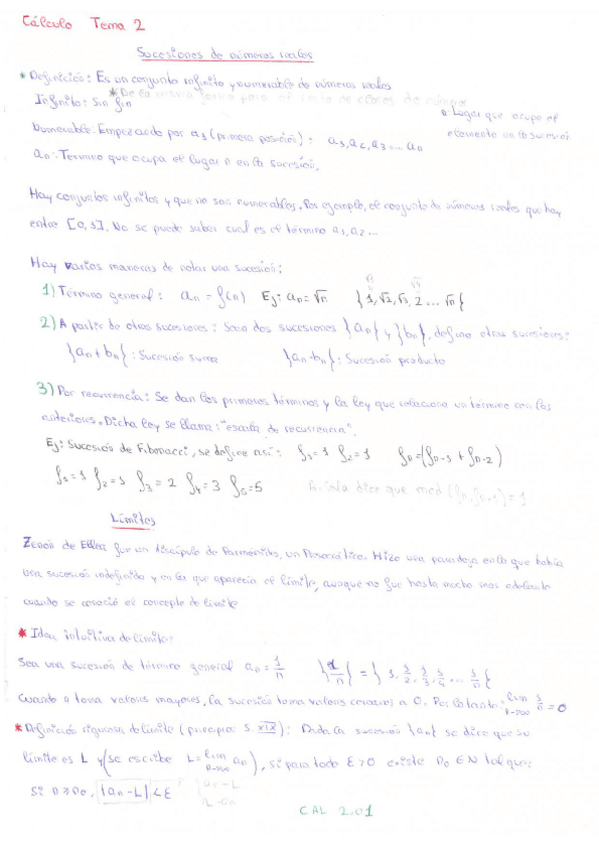 Cálculo Tema 2
Sucesiones de números reales
* Definición: Es un conjunto infinito y numerable de números reales
* De la misma forma para el resto de clases de números
Infinito: Sin fin
n: Lugar que ocupa el elemento en la sucesión
Numerable: Empezando por a₁ (primera posición): a₁, a₂, a₃ ... aₙ
aₙ: Término que ocupa el lugar n en la sucesión.
Hay conjuntos infinitos y que no son numerables. Por ejemplo, el conjunto de números reales que hay
entre [0,1]. No se puede saber cual es el término a₁, a₂ ...
Hay varias maneras de notar una sucesión:
1) Término general: aₙ = f(n) Ej: aₙ = √n {1, √2, √3, 2 ... √n}
2) A partir de otras sucesiones: Sean dos sucesiones {aₙ} y {bₙ}, defino otras sucesiones:
{aₙ + bₙ}: Sucesión suma {aₙ·bₙ}: Sucesión producto
3) Por recurrencia: Se dan los primeros términos y la ley que relaciona un término con los
anteriores. Dicha ley se llama: "escala de recurrencia".
Ej: Sucesión de Fibonacci, se define así: f₁=1 f₂=1 fₙ=(fₙ₋₁ + fₙ₋₂)
f₁=1 f₂=1 f₃=2 f₄=3 f₅=5 dice que mcd (fₙ, fₙ₊₁)=1
Límites
Zenón de Elea fue un discípulo de Parménides, un Presocrático. Hizo una paradoja en la que había
una sucesión indefinida y en la que aparecía el límite, aunque no fue hasta mucho más adelante
cuando se conoció el concepto de límite
* Idea intuitiva de límite:
Sea una sucesión de término general aₙ = 1/n {1/n} = {1, 1/2, 1/3, 1/4 ... 1/n}
Cuando n toma valores mayores, la sucesión toma valores cercanos a 0. Por lo tanto: lim n→∞ 1/n = 0
* Definición rigurosa de límite (principios S. XIX): Dada la sucesión {aₙ} se dice que su
límite es L y (se escribe L = lim n→∞ aₙ), si para todo ε>0 existe n₀ ∈ N tal que:
Si n ≥ n₀, |aₙ - L| < ε
aₙ - L
L - aₙ
CAL 2.01